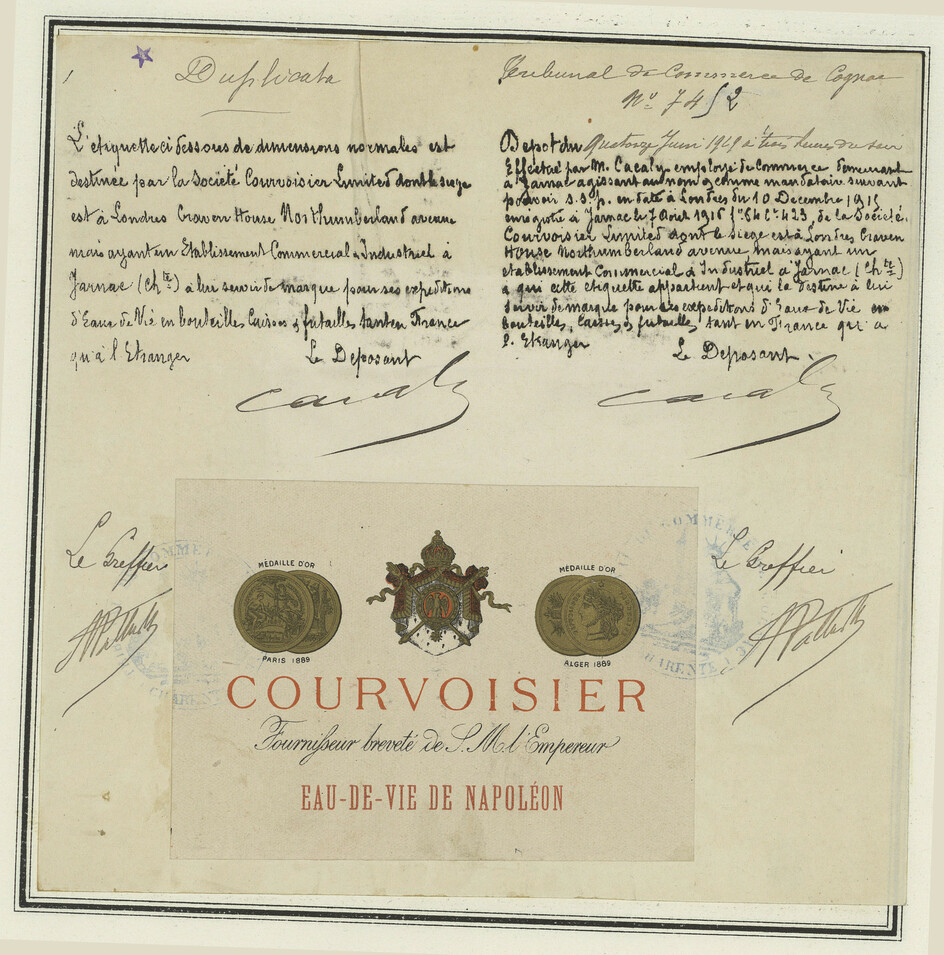 1
Duplicata
L'étiquette ci dessous de dimensions normales est
destinée par la Société Courvoisier Limited dont le siege
est à Londres Craven House Northumberland avenue
mais ayant en Etablissement Commercial & Industriel à
Jarnac (Chte) à lui servir de marque pour ses expeditions
d'Eaux de Vie en bouteilles Caisses & futailles tant en France
qu'à l'Etranger
Le Deposant
Cacaly
Tribunal de Commerce de Cognac
No 7452
Depot du Quatorze Juin 1919 à trois heures du soir
Effectué par M. Cacaly employé de Commerce demeurant
à Jarnac agissant au nom & comme mandataire suivant
pouvoir s.s.p. en date à Londres du 10 Decembre 1915
enregistré à Jarnac le 7 Aout 1916 fo 64 Co 423, de la Société
Courvoisier Limited dont le Siege est à Londres Craven
House Northumberland avenue mais ayant un
etablissement Commercial & Industriel à Jarnac (Chte)
a qui cette etiquette appartient et qui la destine à lui
servir de marque pour ses expeditions d'Eaux de Vie en
bouteilles, Caisses & futailles tant en France qu'a
l'Etranger
Le Deposant
Cacaly
Le Greffier
Le Greffier
MÉDAILLE D'OR
PARIS 1889
MÉDAILLE D'OR
ALGER 1889
COURVOISIER
Fournisseur breveté de S. M. l'Empereur
EAU-DE-VIE DE NAPOLÉON